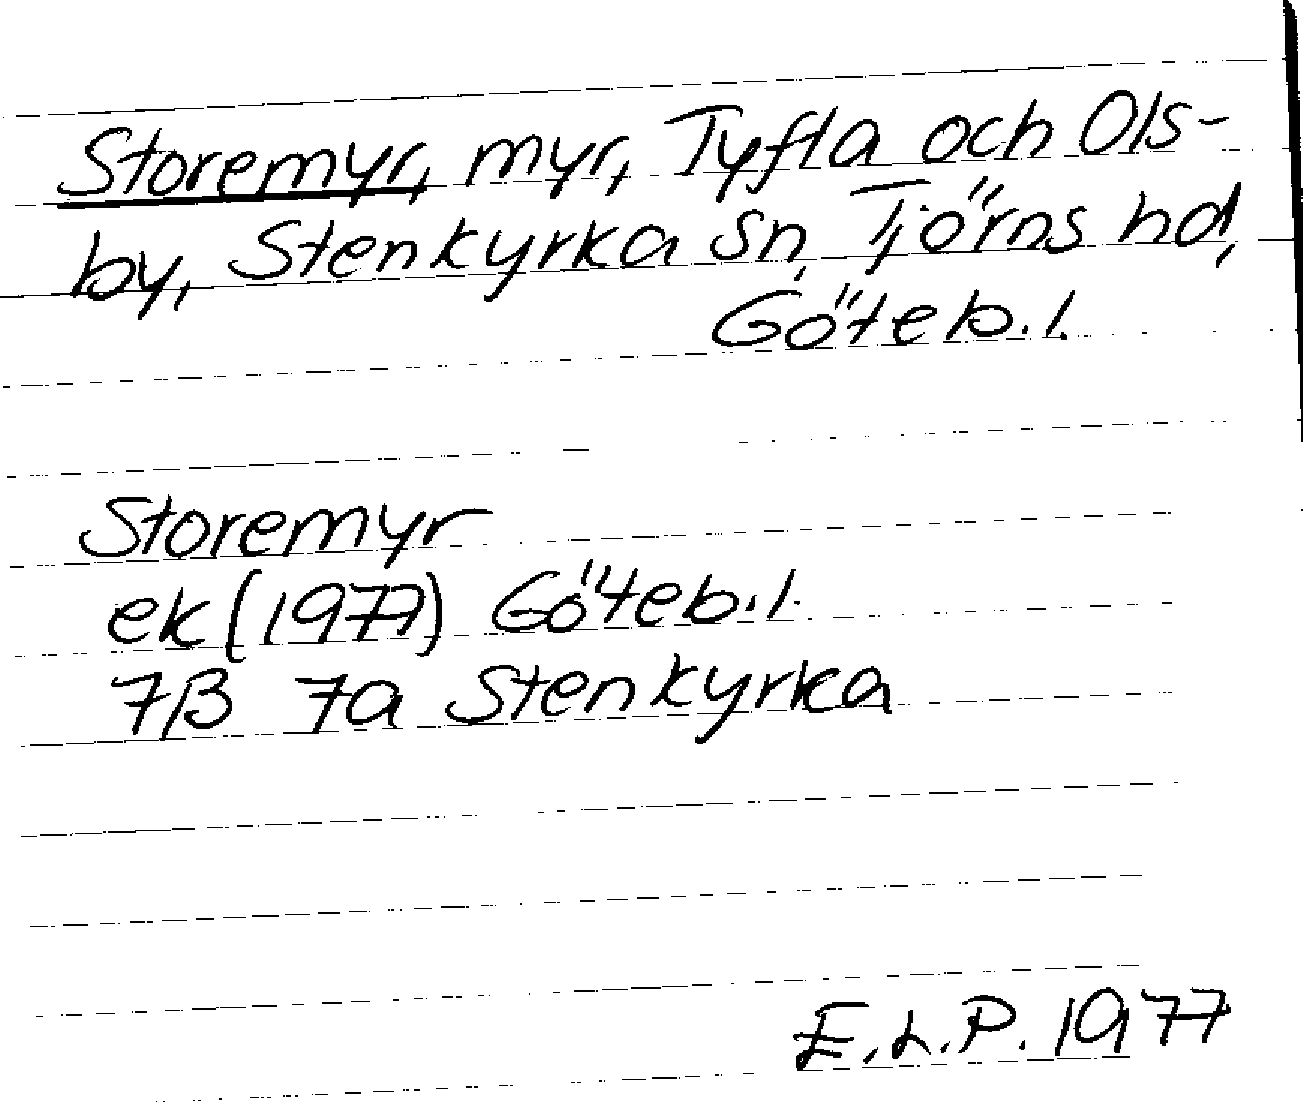 Storemyr, myr, Tyfta och Ols-
by, Stenkyrka sn, Tjörns hd,
Göteb.l.
Storemyr
ek (1977) Göteb.l.
7B 7a Stenkyrka
E.L.P. 1977